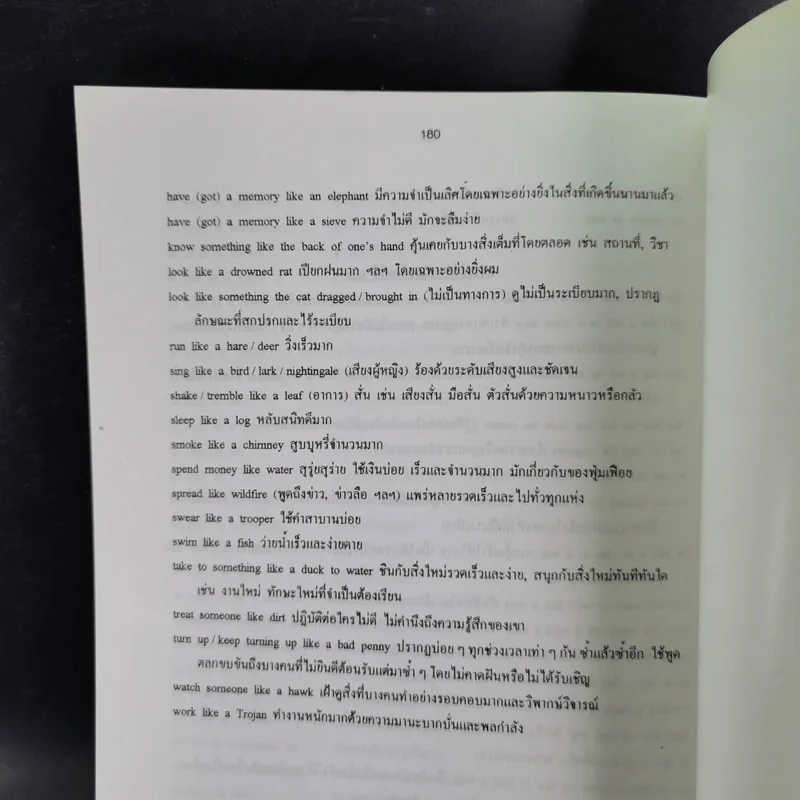 180
have (got) a memory like an elephant มีความจำเป็นเลิศโดยเฉพาะอย่างยิ่งในสิ่งที่เกิดขึ้นนานมาแล้ว
have (got) a memory like a sieve ความจำไม่ดี มักจะลืมง่าย
know something like the back of one's hand คุ้นเคยกับบางสิ่งเต็มที่โดยตลอด เช่น สถานที่, วิชา
look like a drowned rat เปียกฝนมาก ฯลฯ โดยเฉพาะอย่างยิ่งผม
look like something the cat dragged / brought in (ไม่เป็นทางการ) ดูไม่เป็นระเบียบมาก, ปรากฏ
ลักษณะที่สกปรกและไร้ระเบียบ
run like a hare / deer วิ่งเร็วมาก
sing like a bird / lark / nightingale (เสียงผู้หญิง) ร้องด้วยระดับเสียงสูงและชัดเจน
shake / tremble like a leaf (อาการ) สั่น เช่น เสียงสั่น มือสั่น ตัวสั่นด้วยความหนาวหรือกลัว
sleep like a log หลับสนิทดีมาก
smoke like a chimney สูบบุหรี่จำนวนมาก
spend money like water สุรุ่ยสุร่าย ใช้เงินบ่อย เร็วและจำนวนมาก มักเกี่ยวกับของฟุ่มเฟือย
spread like wildfire (พูดถึงข่าว, ข่าวลือ ฯลฯ) แพร่หลายรวดเร็วและไปทั่วทุกแห่ง
swear like a trooper ใช้คำสาบานบ่อย
swim like a fish ว่ายน้ำเร็วและง่ายดาย
take to something like a duck to water ชินกับสิ่งใหม่รวดเร็วและง่าย, สนุกกับสิ่งใหม่ทันทีทันใด
เช่น งานใหม่ ทักษะใหม่ที่จำเป็นต้องเรียน
treat someone like dirt ปฏิบัติต่อใครไม่ดี ไม่คำนึงถึงความรู้สึกของเขา
turn up / keep turning up like a bad penny ปรากฏบ่อย ๆ ทุกช่วงเวลาเท่า ๆ กัน ซ้ำแล้วซ้ำอีก ใช้พูด
ตลกขบขันถึงบางคนที่ไม่ยินดีต้อนรับแต่มาซ้ำ ๆ โดยไม่คาดฝันหรือไม่ได้รับเชิญ
watch someone like a hawk เฝ้าดูสิ่งที่บางคนทำอย่างรอบคอบมากและวิพากษ์วิจารณ์
work like a Trojan ทำงานหนักมากด้วยความมานะบากบั่นและพลกำลัง